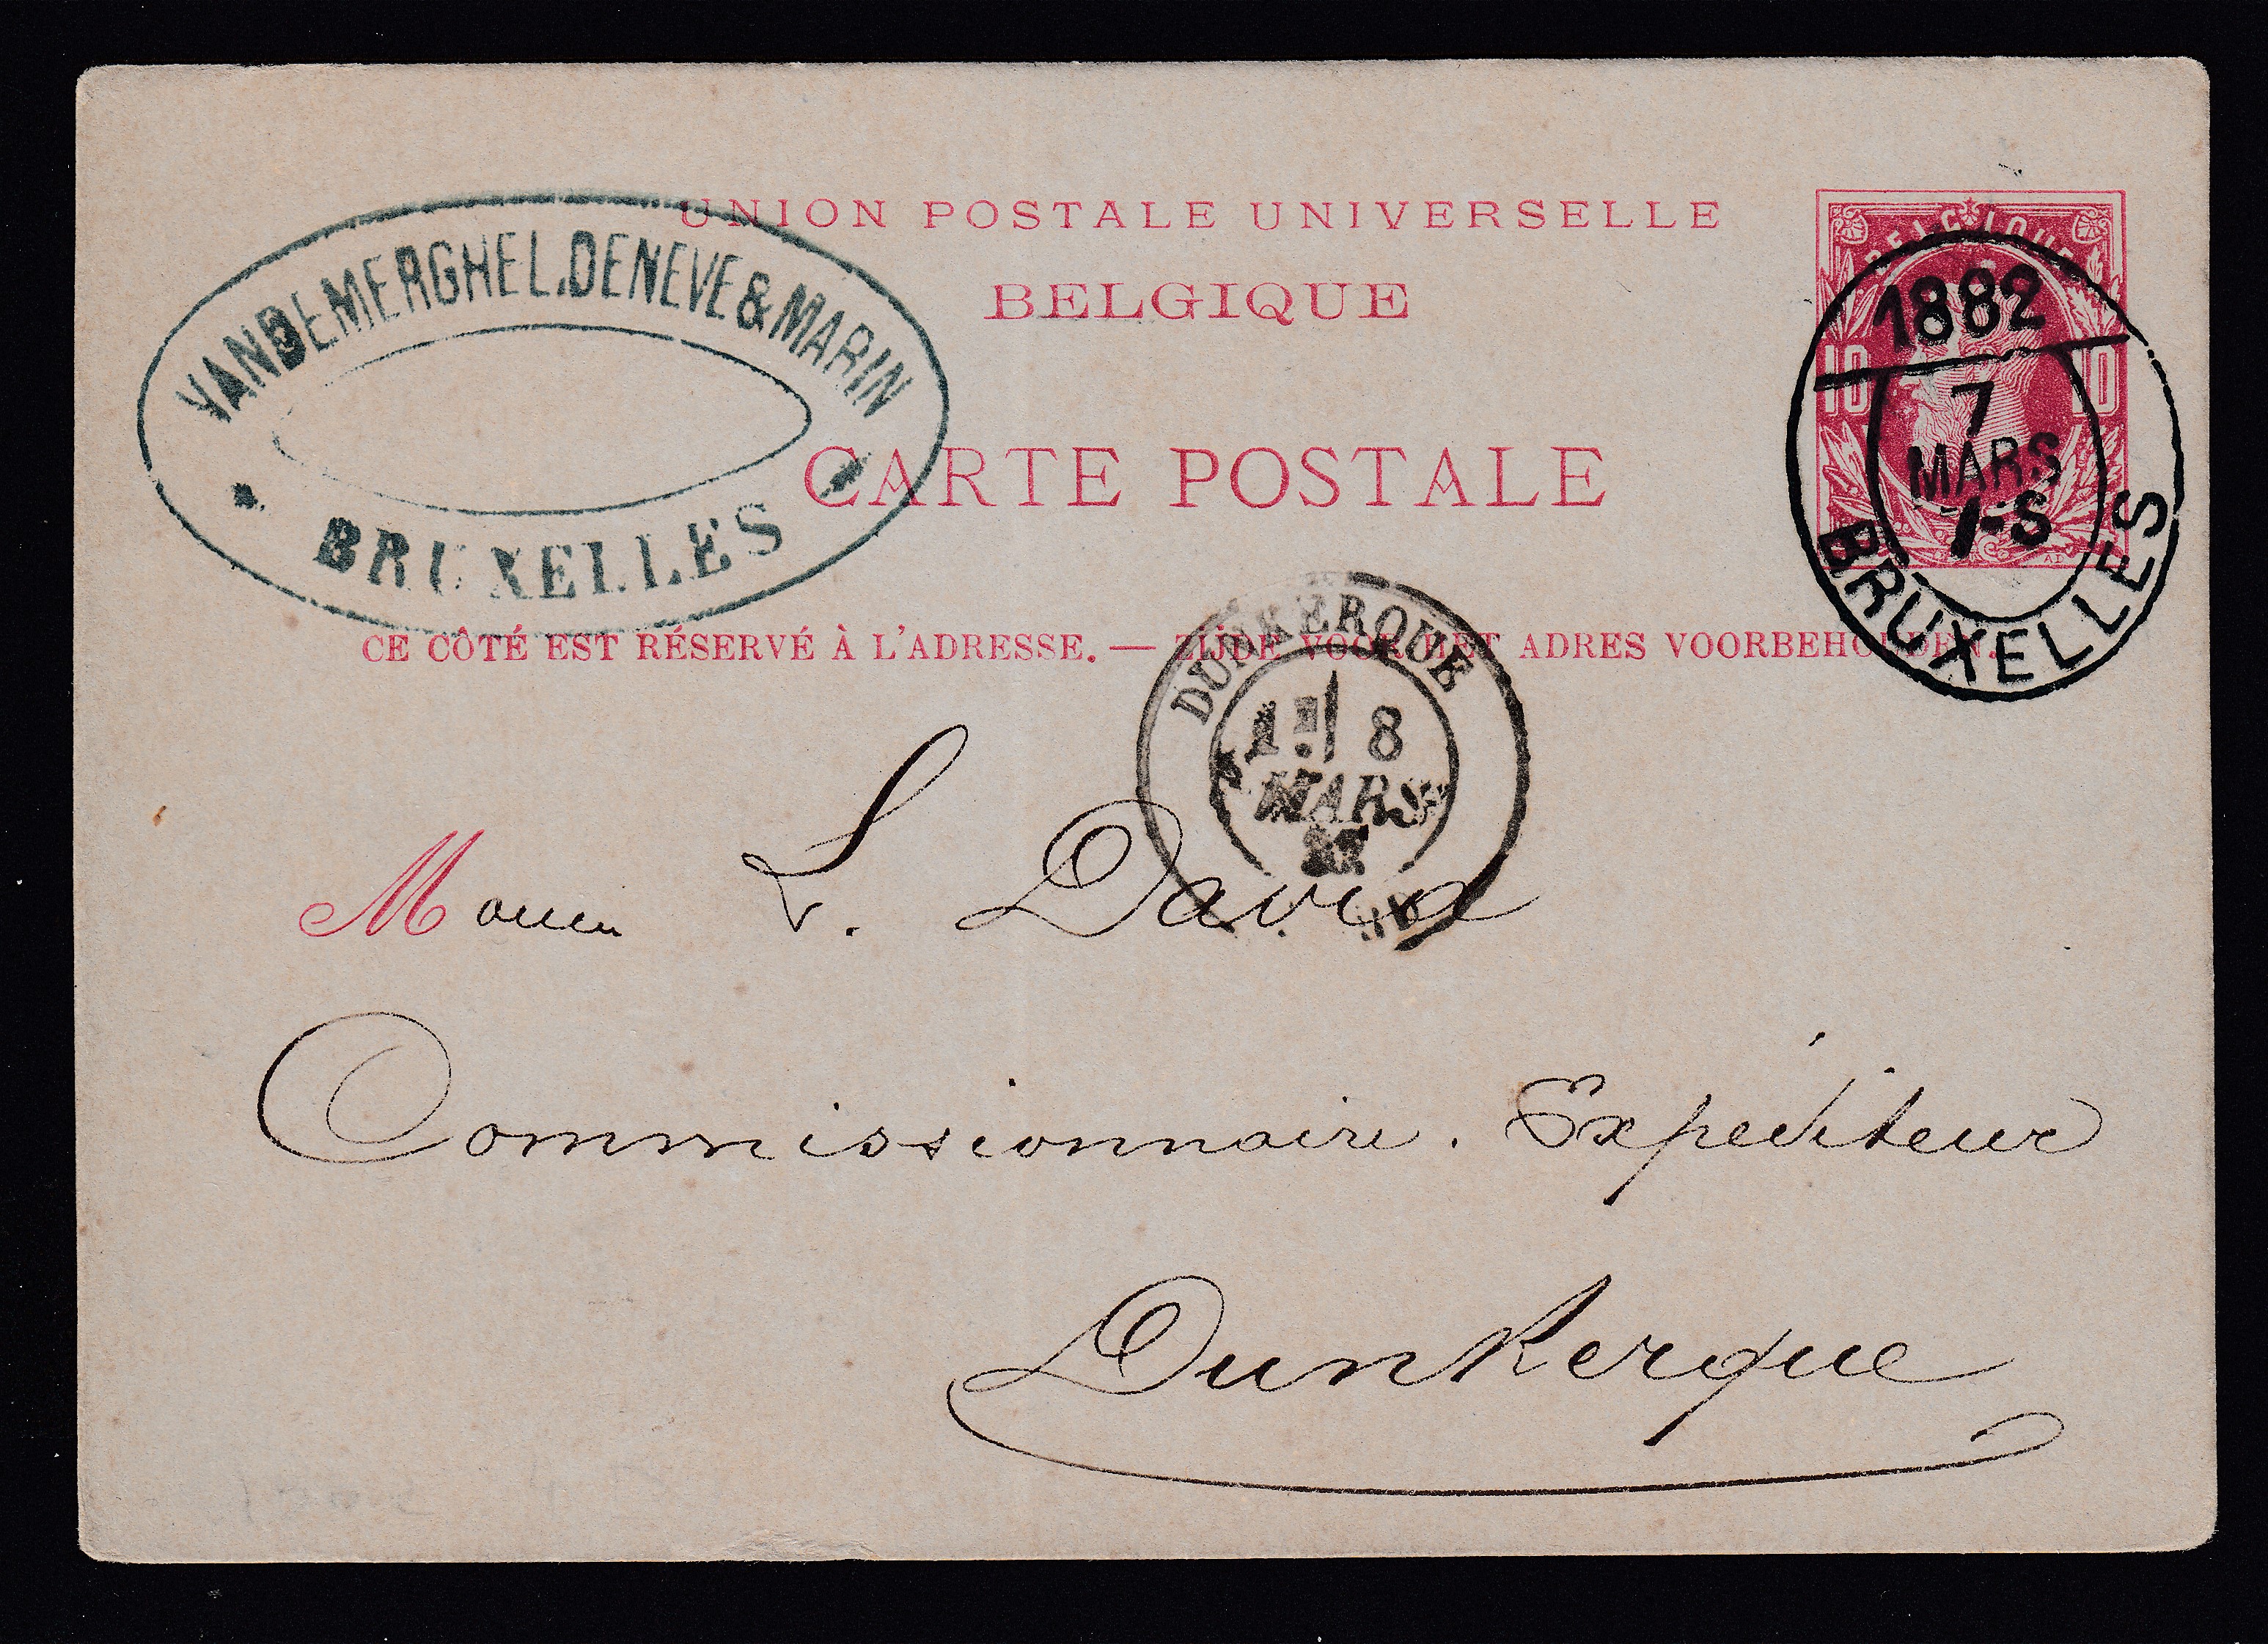 UNION POSTALE UNIVERSELLE
BELGIQUE
CARTE POSTALE
VANDEMERGHEL.DENEVE & MARIN
BRUXELLES
BELGIQUE
10 10
1882
7
MARS
7-S
BRUXELLES
CE CÔTÉ EST RÉSERVÉ À L'ADRESSE. — ZIJDE VOOR HET ADRES VOORBEHOUDEN.
DUNKERQUE
8
MARS
L. David
Commissionnaire. Expéditeur
Dunkerque